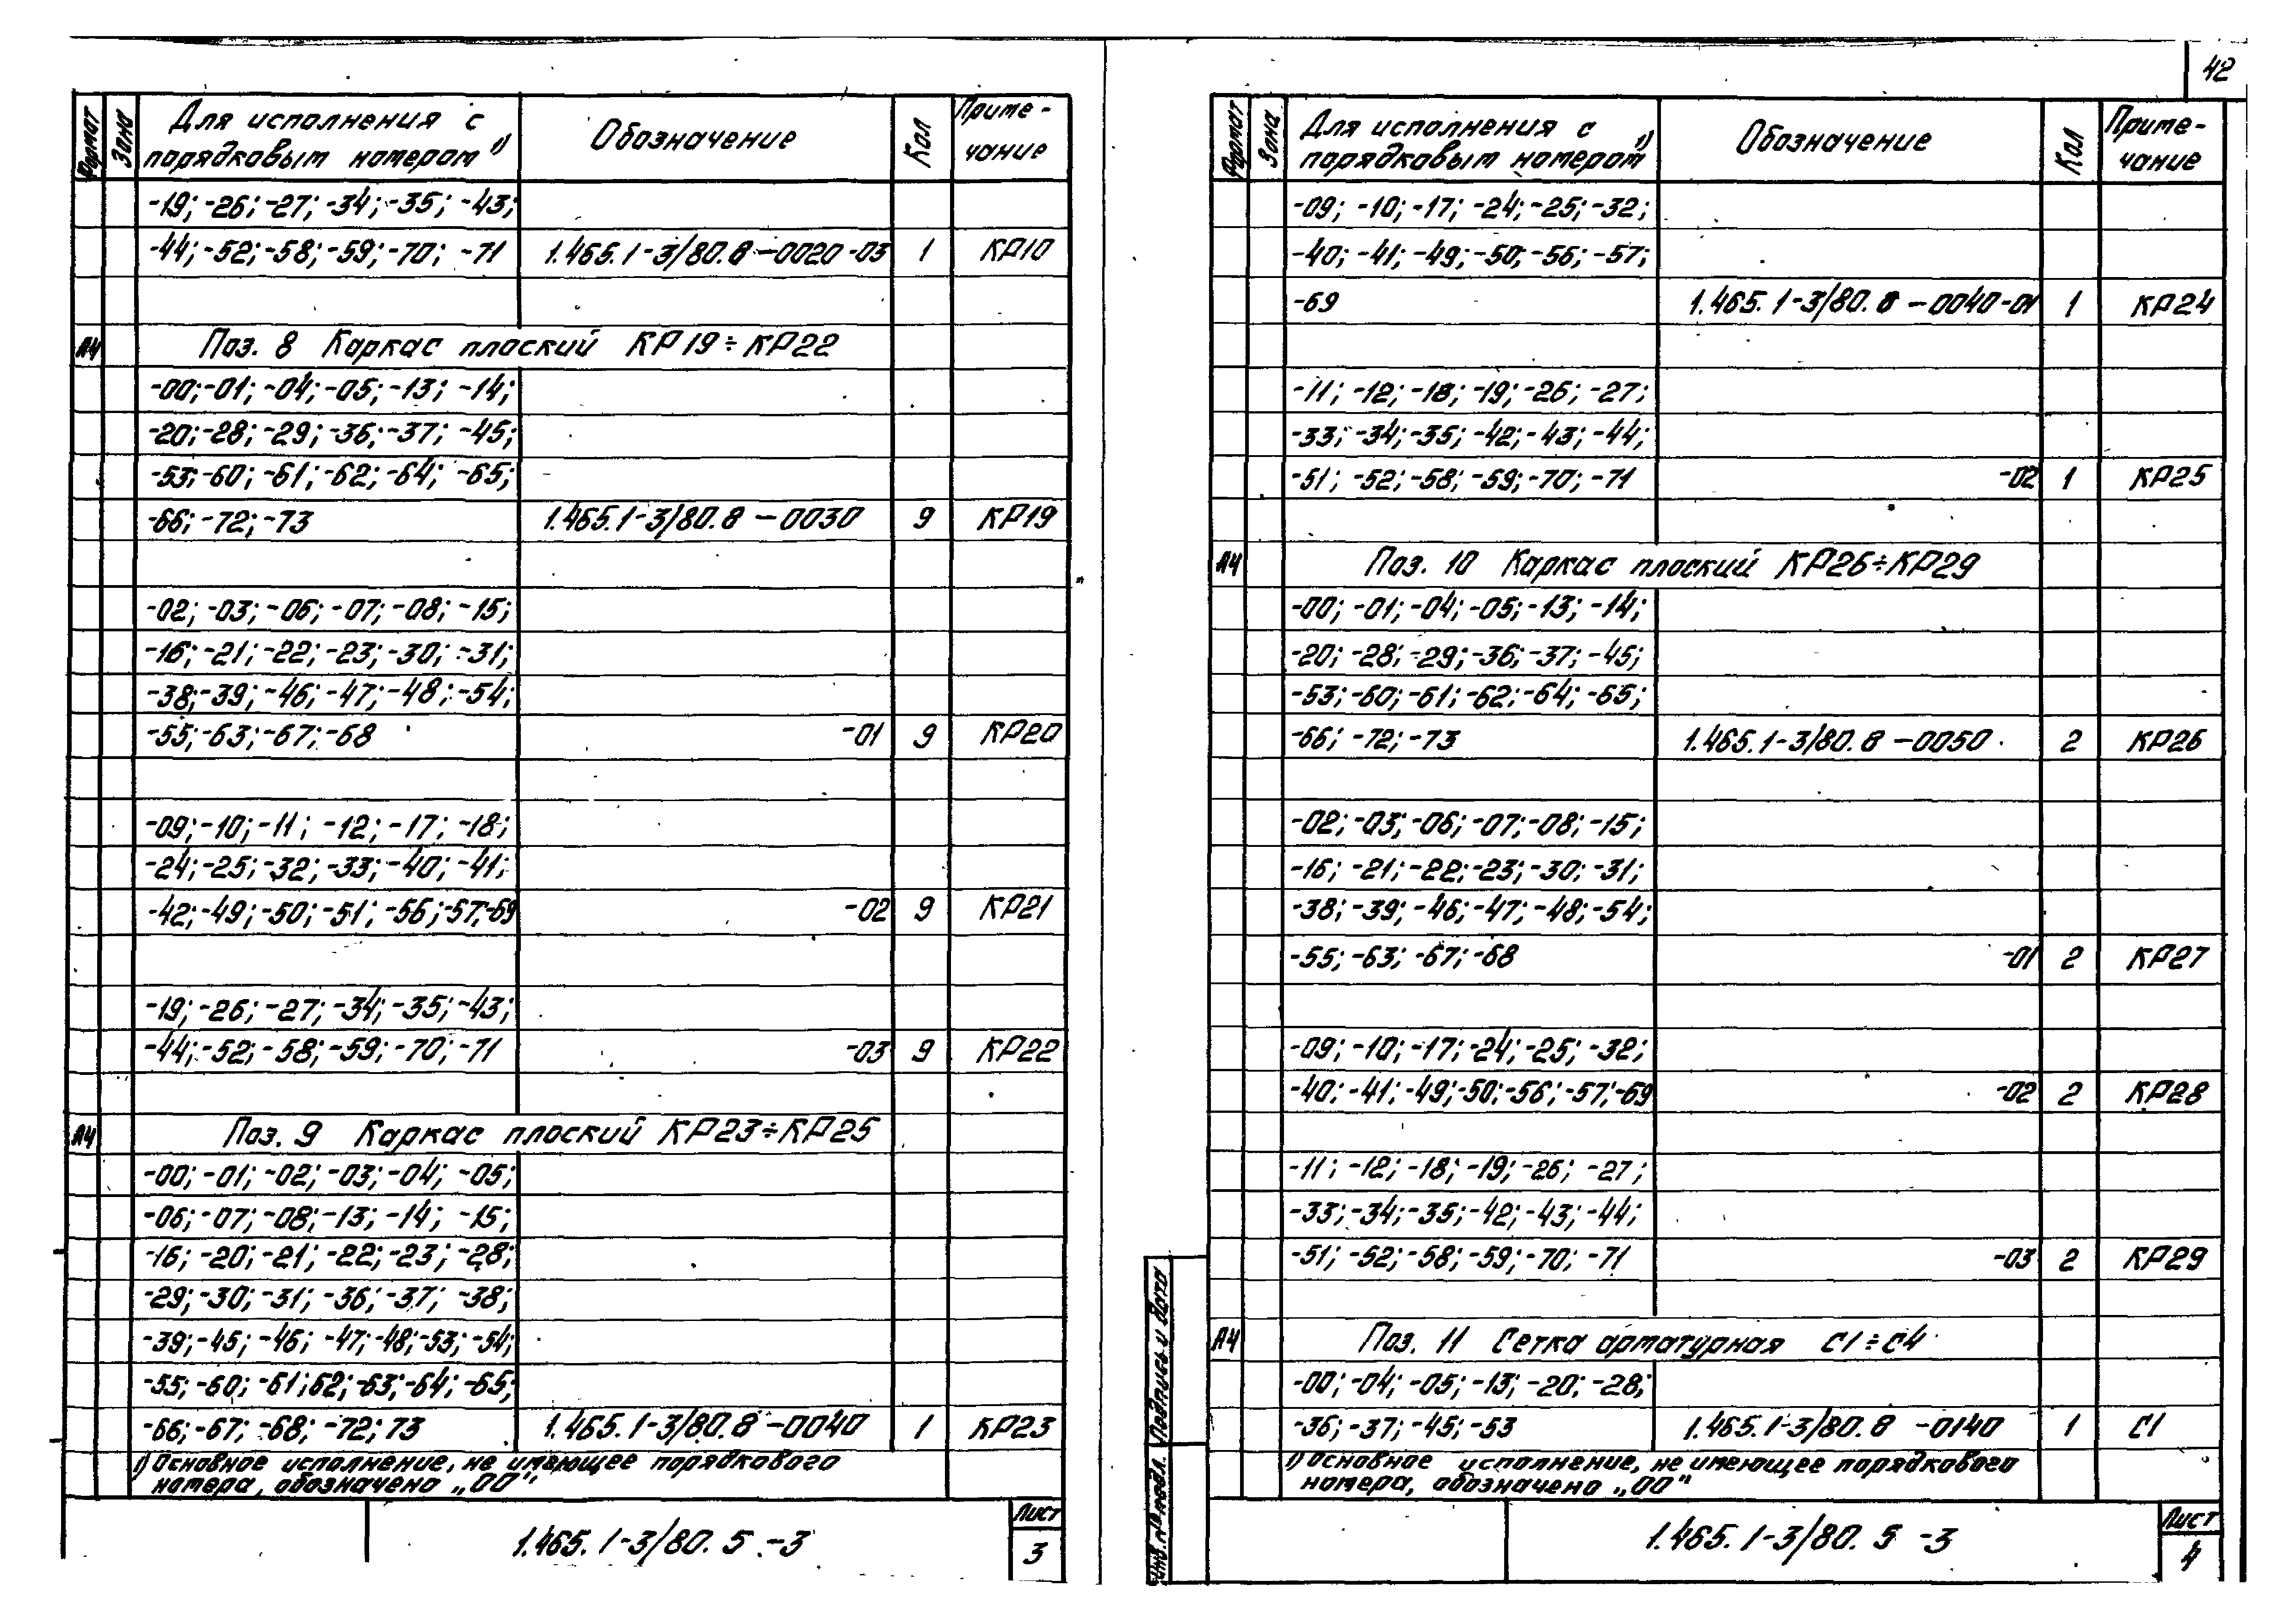 42
Формат
Зона
Для исполнения с
порядковым номером 1)
Обозначение
Кол
Приме-
чание
-19; -26; -27; -34; -35; -43;
-44; -52; -58; -59; -70; -71 1.465.1-3/80.8-0020-03 1 КР10
А4 Поз. 8 Каркас плоский КР19÷КР22
-00; -01; -04; -05; -13; -14;
-20; -28; -29; -36; -37; -45;
-53; -60; -61; -62; -64; -65;
-66; -72; -73 1.465.1-3/80.8-0030 9 КР19
-02; -03; -06; -07; -08; -15;
-16; -21; -22; -23; -30; -31;
-38; -39; -46; -47; -48; -54;
-55; -63; -67; -68 -01 9 КР20
-09; -10; -11; -12; -17; -18;
-24; -25; -32; -33; -40; -41;
-42; -49; -50; -51; -56; -57; -69 -02 9 КР21
-19; -26; -27; -34; -35; -43;
-44; -52; -58; -59; -70; -71 -03 9 КР22
А4 Поз. 9 Каркас плоский КР23÷КР25
-00; -01; -02; -03; -04; -05;
-06; -07; -08; -13; -14; -15;
-16; -20; -21; -22; -23; -28;
-29; -30; -31; -36; -37; -38;
-39; -45; -46; -47; -48; -53; -54;
-55; -60; -61; 62; -63; -64; -65;
-66; -67; -68; -72; 73 1.465.1-3/80.8-0040 1 КР23
1) Основное исполнение, не имеющее порядкового
номера, обозначено „00"
1.465.1-3/80.5-3
Лист
3
Формат
Зона
Для исполнения с
порядковым номером 1)
Обозначение
Кол
Приме-
чание
-09; -10; -17; -24; -25; -32;
-40; -41; -49; -50; -56; -57;
-69 1.465.1-3/80.8-0040-01 1 КР24
-11; -12; -18; -19; -26; -27;
-33; -34; -35; -42; -43; -44;
-51; -52; -58; -59; -70; -71 -02 1 КР25
А4 Поз. 10 Каркас плоский КР26÷КР29
-00; -01; -04; -05; -13; -14;
-20; -28; -29; -36; -37; -45;
-53; -60; -61; -62; -64; -65;
-66; -72; -73 1.465.1-3/80.8-0050 2 КР26
-02; -03; -06; -07; -08; -15;
-16; -21; -22; -23; -30; -31;
-38; -39; -46; -47; -48; -54;
-55; -63; -67; -68 -01 2 КР27
-09; -10; -17; -24; -25; -32;
-40; -41; -49; -50; -56; -57; -69 -02 2 КР28
-11; -12; -18; -19; -26; -27;
-33; -34; -35; -42; -43; -44;
-51; -52; -58; -59; -70; -71 -03 2 КР29
А4 Поз. 11 Сетка арматурная С1÷С4
-00; -04; -05; -13; -20; -28;
-36; -37; -45; -53 1.465.1-3/80.8-0140 1 С1
1) Основное исполнение, не имеющее порядкового
номера, обозначено „00"
Инв. № подл. Подпись и дата
1.465.1-3/80.5-3
Лист
4